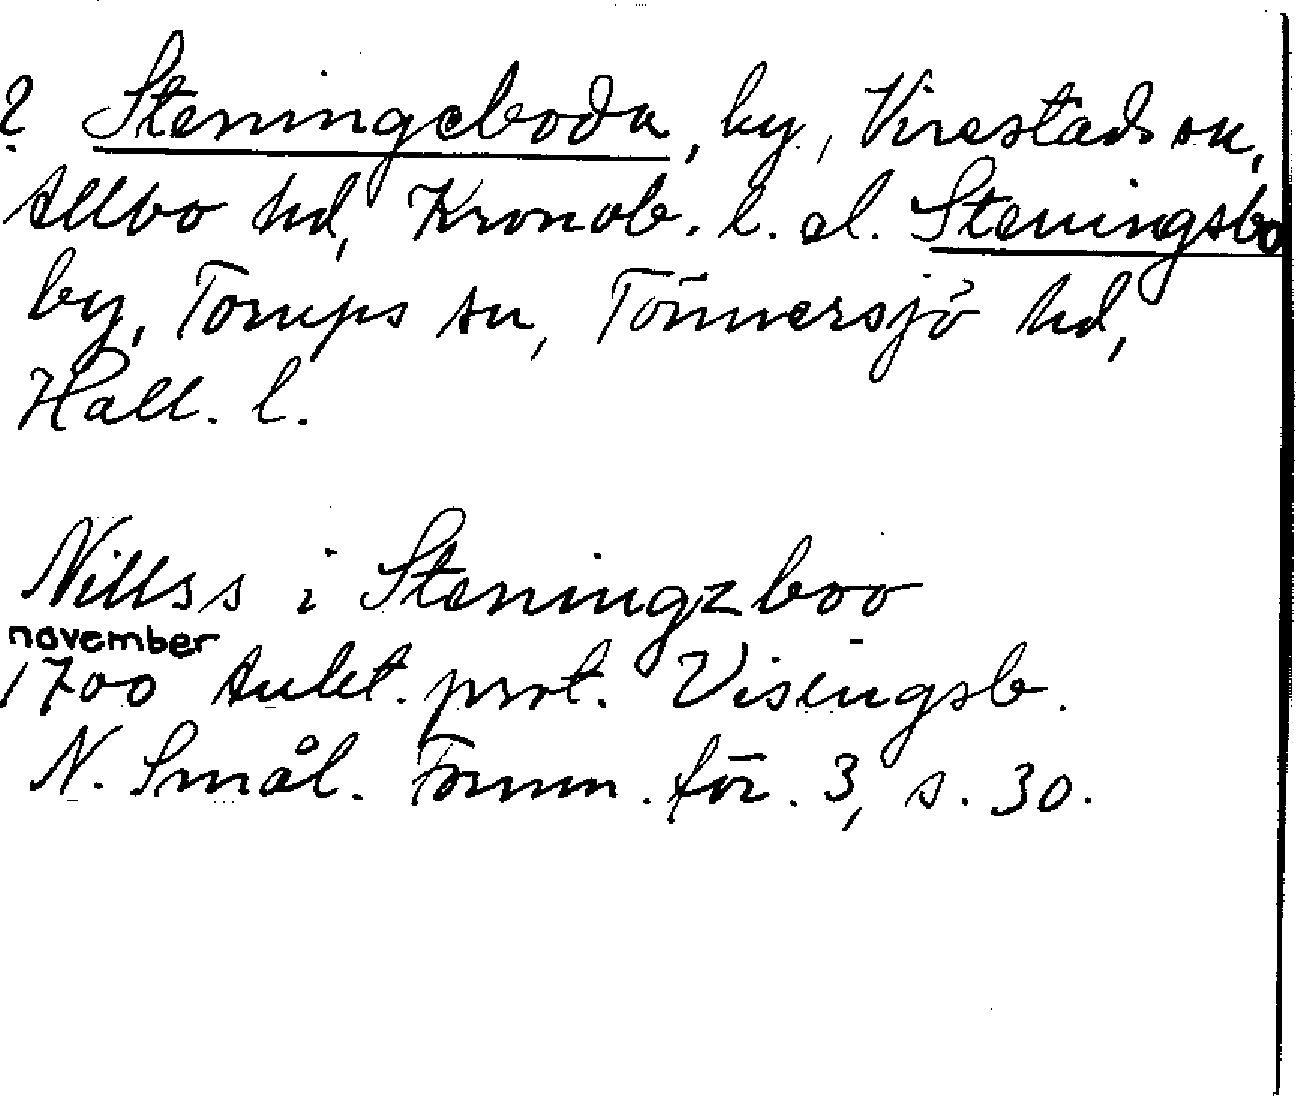 ? Steningeboda, by, Virestads sn,
Allbo hd, Kronob. l. el. Steningsbo
by, Torups sn, Tönnersjö hd,
Hall. l.
Nillss i Steningzboo
november
1700 Aukt. prot. Visingsb.
N. Smål. Fornm. för. 3, s. 30.